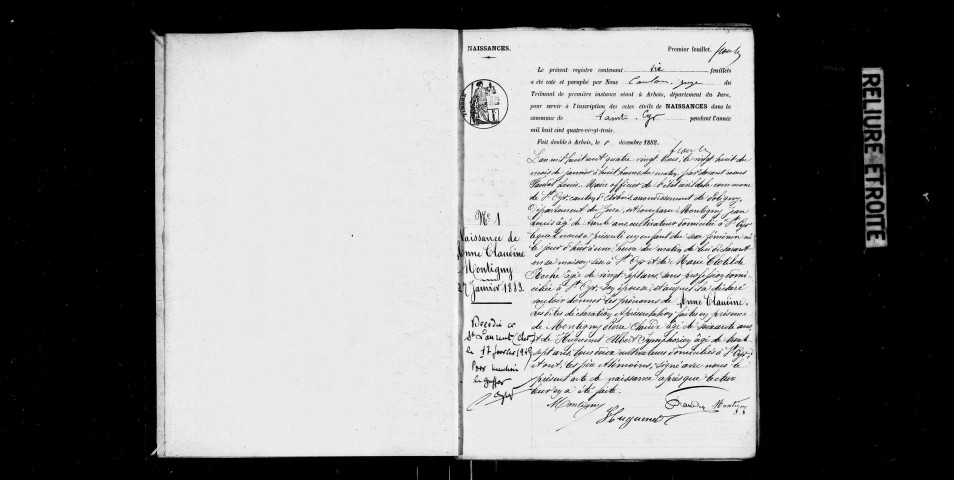 NAISSANCES.
Premier feuillet.
Le présent registre contenant six feuillets
a été coté et paraphé par Nous Coulon, juge du
Tribunal de première instance séant à Arbois, département du Jura,
pour servir à l'inscription des actes civils de NAISSANCES dans la
commune de Saint-Cyr pendant l'année
mil huit cent quatre-vingt-trois.
Fait double à Arbois, le 1 décembre 1882.
L'an mil huit cent quatre vingt trois, le vingt huit du
mois de janvier à huit heures du matin, par devant nous
Louis, Maire officier de l'état civil de la commune
de St Cyr, canton d'Arbois, arrondissement de Poligny,
Département du Jura, est comparu Montigny Jean
Louis âgé de trente ans, cultivateur domicilié à St Cyr
lequel nous a présenté un enfant du sexe féminin né
le jour d'hier d'une heure du matin de lui déclarant
en sa maison sise à St Cyr et de Marie Clotilde
Roche âgée de vingt sept ans, sans profession domi-
ciliée à St Cyr, son épouse, et auquel il a déclaré
vouloir donner les prénoms de Anne Clauvine.
Lesdites déclaration et présentation faites en présence
de Montigny Pierre Claude âgé de soixante ans,
et de Huguenet Albert Symphorien âgé de trente
sept ans, tous deux cultivateurs domiciliés à St Cyr,
et ont, les père et témoins, signé avec nous le
présent acte de naissance après que lecture
leur en a été faite.
Montigny
Montigny
Huguenet
No 1
Naissance de
Anne Clauvine
Montigny
27 Janvier 1883.
Décédée à
St Laurent
le 17 février
Pour mention
le greffier
RELIURE ETROITE